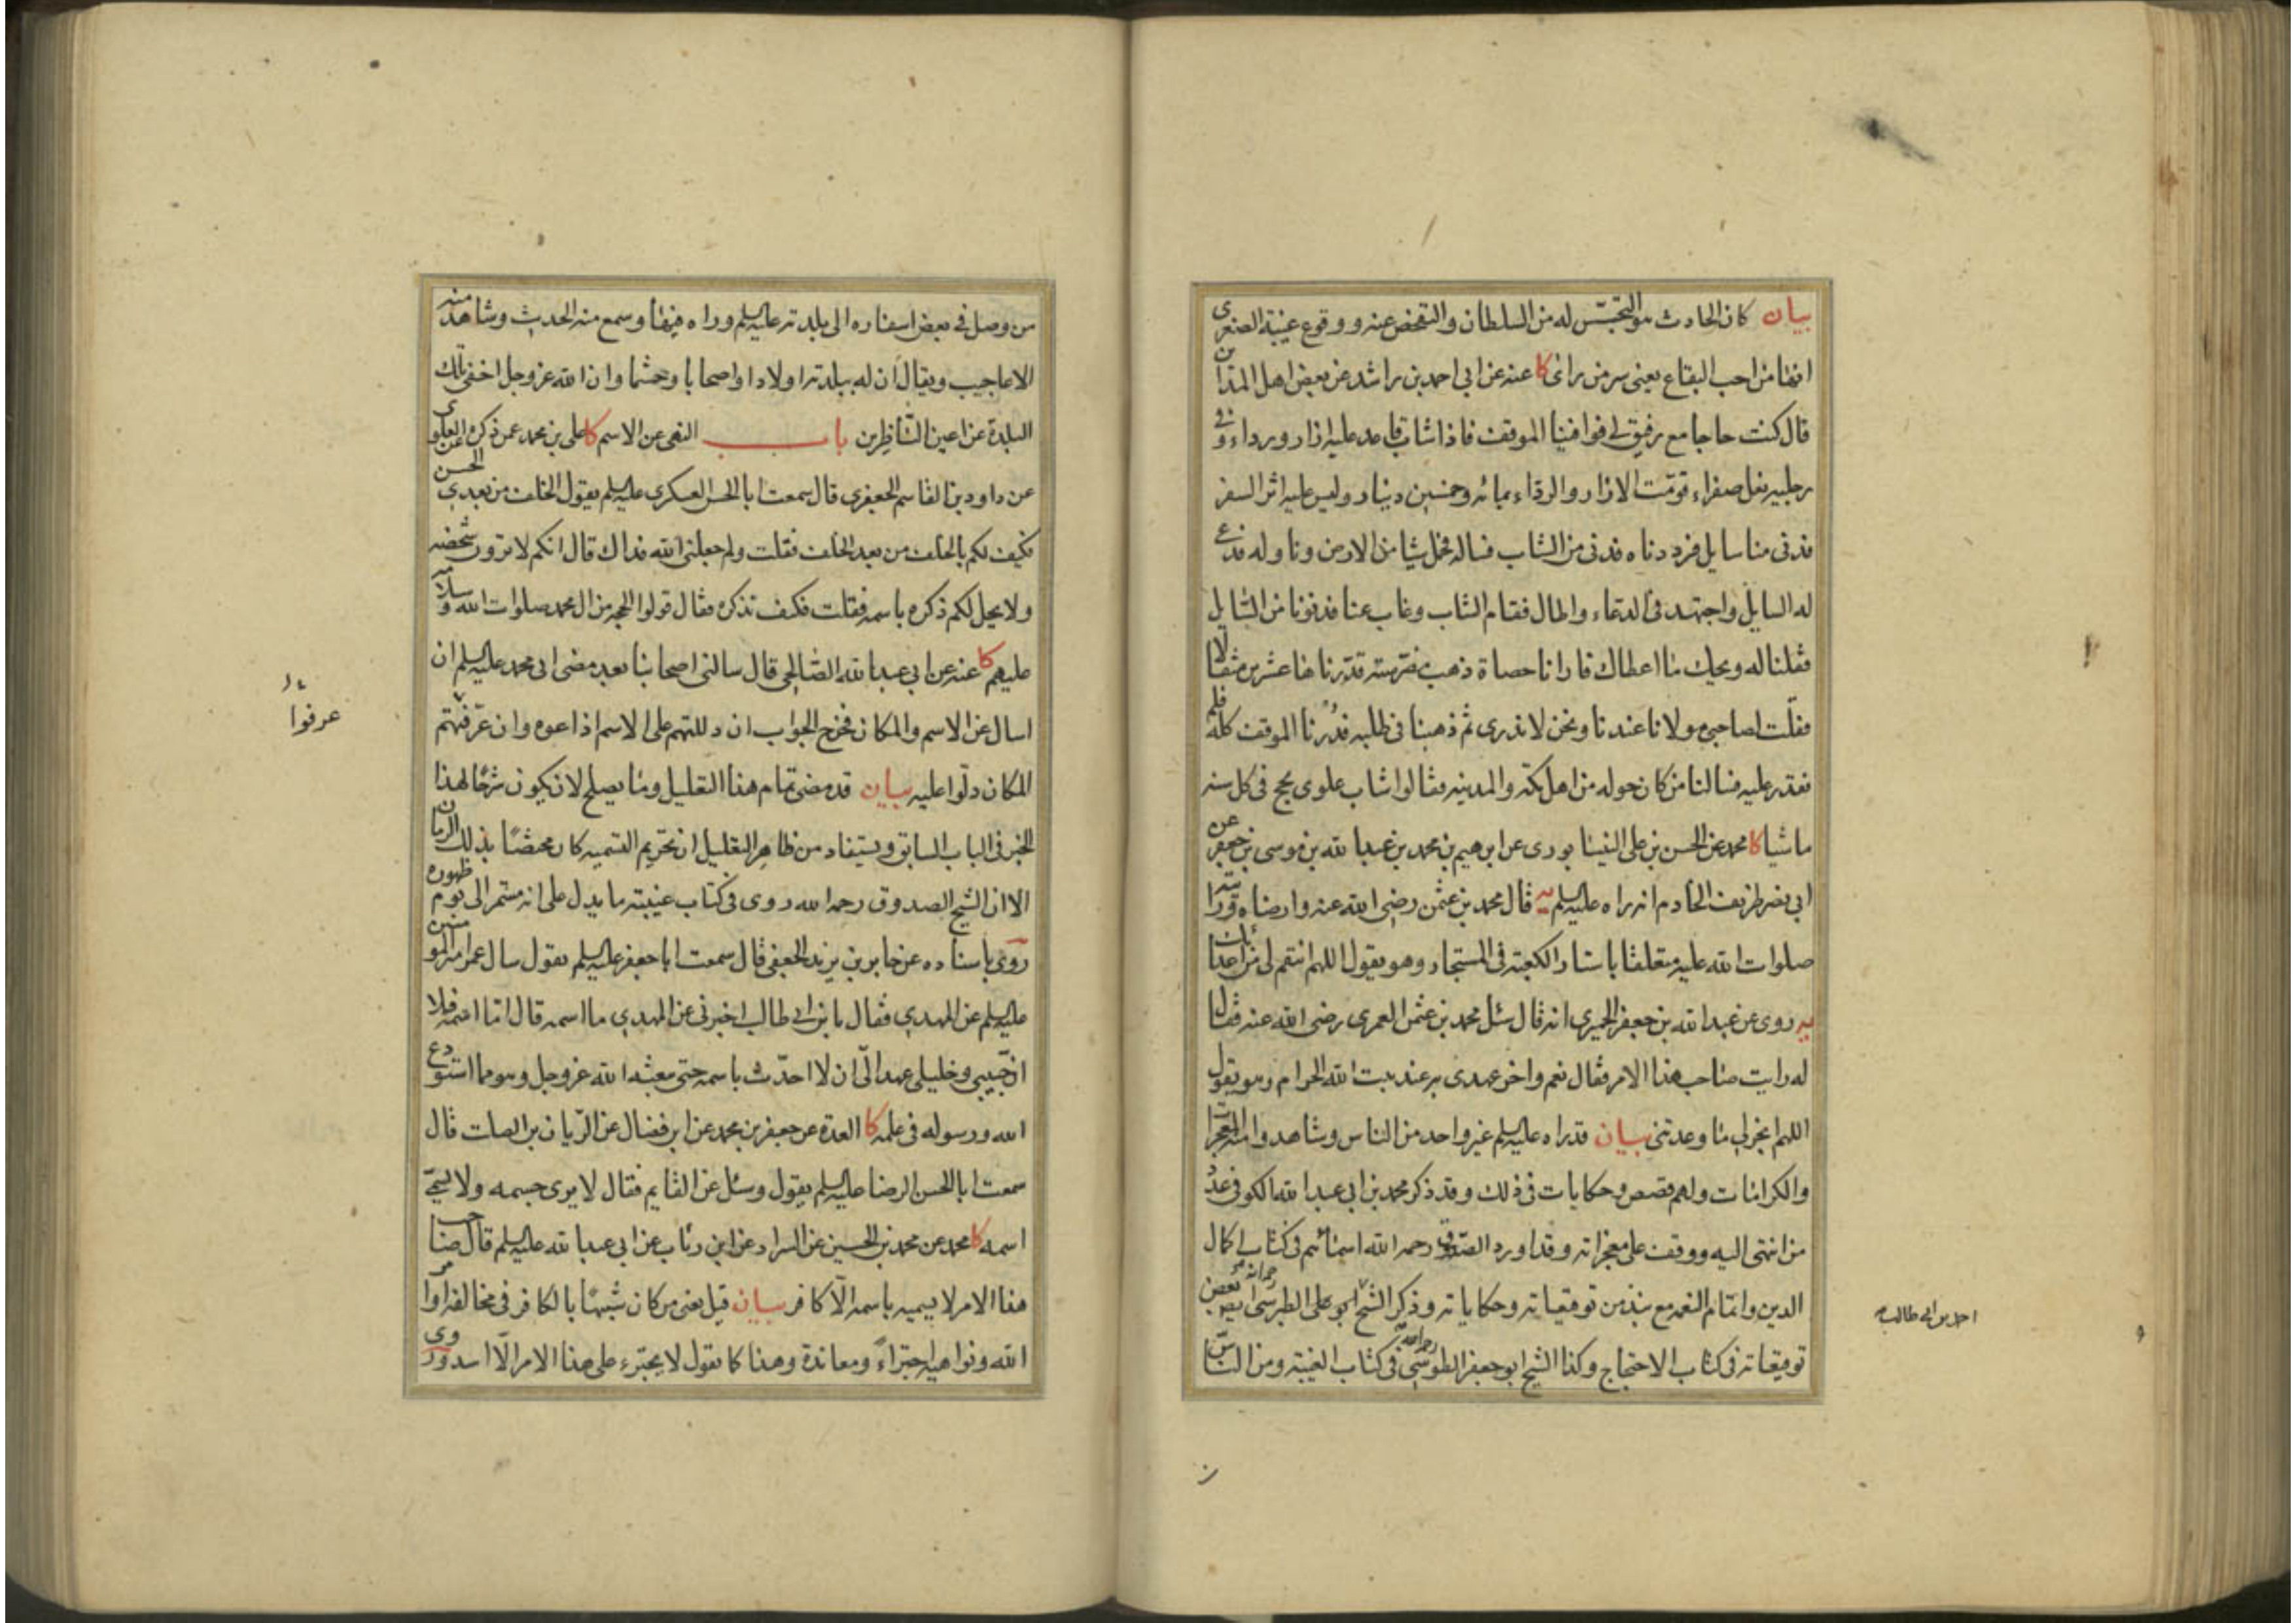 بيان كان الحادث هو التجسّس له من السلطان والتفحص عنه ووقوع غيبة الصغرى
انها من احب البقاع يعنى سر من راى كا عنه عن ابى احمد بن راشد عن بعض اهل المداين
قال كنت حاجا مع رفيق لى فوافينا الموقف فاذا شاب قاعد عليه ازار ورداء وفى
رجليه نعل صفراء قومّت الازار والرداء بمائه وخمسين دينار وليس عليه اثر السفر
فدنى منا سايل فرددناه فدنى من الشاب فساله فحمل شيئا من الارض وناوله فدعى
له السايل واجتهد فى الدعاء واطال فقام الشاب وغاب عنا فدنونا من السايل
فقلنا له ويحك ما اعطاك فارانا حصاة ذهب مضرسة قدّرناها عشرين مثقالا
فقلت لصاحبى مولانا عندنا ونحن لا ندرى ثم ذهبنا فى طلبه فدرنا الموقف كله فلم
نقدر عليه فسالنا من كان حوله من اهل مكة والمدينه فقالوا شاب علوى يحج فى كل سنه
ماشيا كا محمد عن الحسن بن على النيسابورى عن ابرهيم بن محمد بن عبد الله بن موسى بن جعفر عن
ابى نصر ظريف الخادم انه راه عليه السلم يه قال محمد بن عثمن رضى الله عنه وارضاه ورايته
صلوات الله عليه متعلقا باستار الكعبة فى المستجار وهو يقول اللهم انتقم لى من اعدائك
يه روى عن عبد الله بن جعفر الحميرى انه قال سئل محمد بن عثمن العمرى رضى الله عنه فقال
له رايت صاحب هذا الامر فقال نعم واخر عهدى به عند بيت الله الحرام وهو يقول
اللهم انجز لى ما وعدتنى بيان قد راه عليه السلم غير واحد من الناس وشاهدوا منه المعجزات
والكرامات ولهم قصص وحكايات فى ذلك وقد ذكر محمد بن ابى عبد الله الكوفى عدد
من انتهى اليه ووقف على معجزاته وقد اورد الصدوق رحمه الله اسمائهم فى كتاب اكمال
الدين واتمام النعمه مع نبذ من توقيعاته وحكاياته وذكر الشيخ ابو على الطبرسى رحمه الله ايضا بعض
توقيعاته فى كتاب الاحتجاج وكذا الشيخ ابو جعفر الطوسى رحمه الله فى كتاب الغيبة ومن الناس
احمد بن ابى طالب
من وصل فى بعض اسفاره الى بلدته عليه السلم وراه فيها وسمع منه الحديث وشاهد منه
الاعاجيب ويقال ان له ببلدته اولادا واصحابا وحشما وان الله عز وجل اخفى تلك
البلدة عن اعين الناظرين باب النهى عن الاسم كا على بن محمد عمن ذكره عن العلوى
عن داود بن القاسم الجعفرى قال سمعت ابا الحسن العسكرى عليه السلم يقول الخلف من بعدى الحسن
فكيف لكم بالخلف من بعد الخلف فقلت ولم جعلنى الله فداك قال انكم لا ترون شخصه
ولا يحل لكم ذكره باسمه فقلت فكيف نذكره فقال قولوا الحجه من ال محمد صلوات الله وسلامه
عليهم كا عنه عن ابى عبد الله الصالحى قال سالنى اصحابنا بعد مضى ابى محمد عليه السلم ان
اسال عن الاسم والمكان فخرج الجواب ان دللتهم على الاسم اذاعوه وان عرفتهم
المكان دلّوا عليه بيان قد مضى تمام هذا التعليل وما يصلح لان يكون شرحا لهذا
الخبر فى الباب السابق ويستفاد من ظاهر التعليل ان تحريم التسميه كان مختصًا بذلك الزمان
الا ان الشيخ الصدوق رحمه الله روى فى كتاب غيبته ما يدل على انه مستمر الى يوم ظهوره
روى باسناده عن جابر بن يزيد الجعفى قال سمعت ابا جعفر عليه السلم يقول سال عمر امير المومنين
عليه السلم عن المهدى فقال يا بن ابى طالب اخبرنى عن المهدى ما اسمه قال اما اسمه فلا
ان حبيبى وخليلى عهد الّى ان لا احدّث باسمه حتى يبعثه الله عز وجل وهو مما استودع
الله ورسوله فى علمه كا العدة عن جعفر بن محمد عن ابن فضال عن الريان بن الصلت قال
سمعت ابا الحسن الرضا عليه السلم يقول وسئل عن القايم فقال لا يرى جسمه ولا يسمّى
اسمه كا محمد عن محمد بن الحسين عن السراد عن ابن رئاب عن ابى عبد الله عليه السلم قال صاحب
هذا الامر لا يسميه باسمه الّا كافر بيان قيل يعنى من كان شبيهًا بالكافر فى مخالفة اوامر
الله ونواهيه اجتراءً ومعاندة وهذا كما تقول لا يجترء على هذا الامر الّا اسد وروى
عرفوا